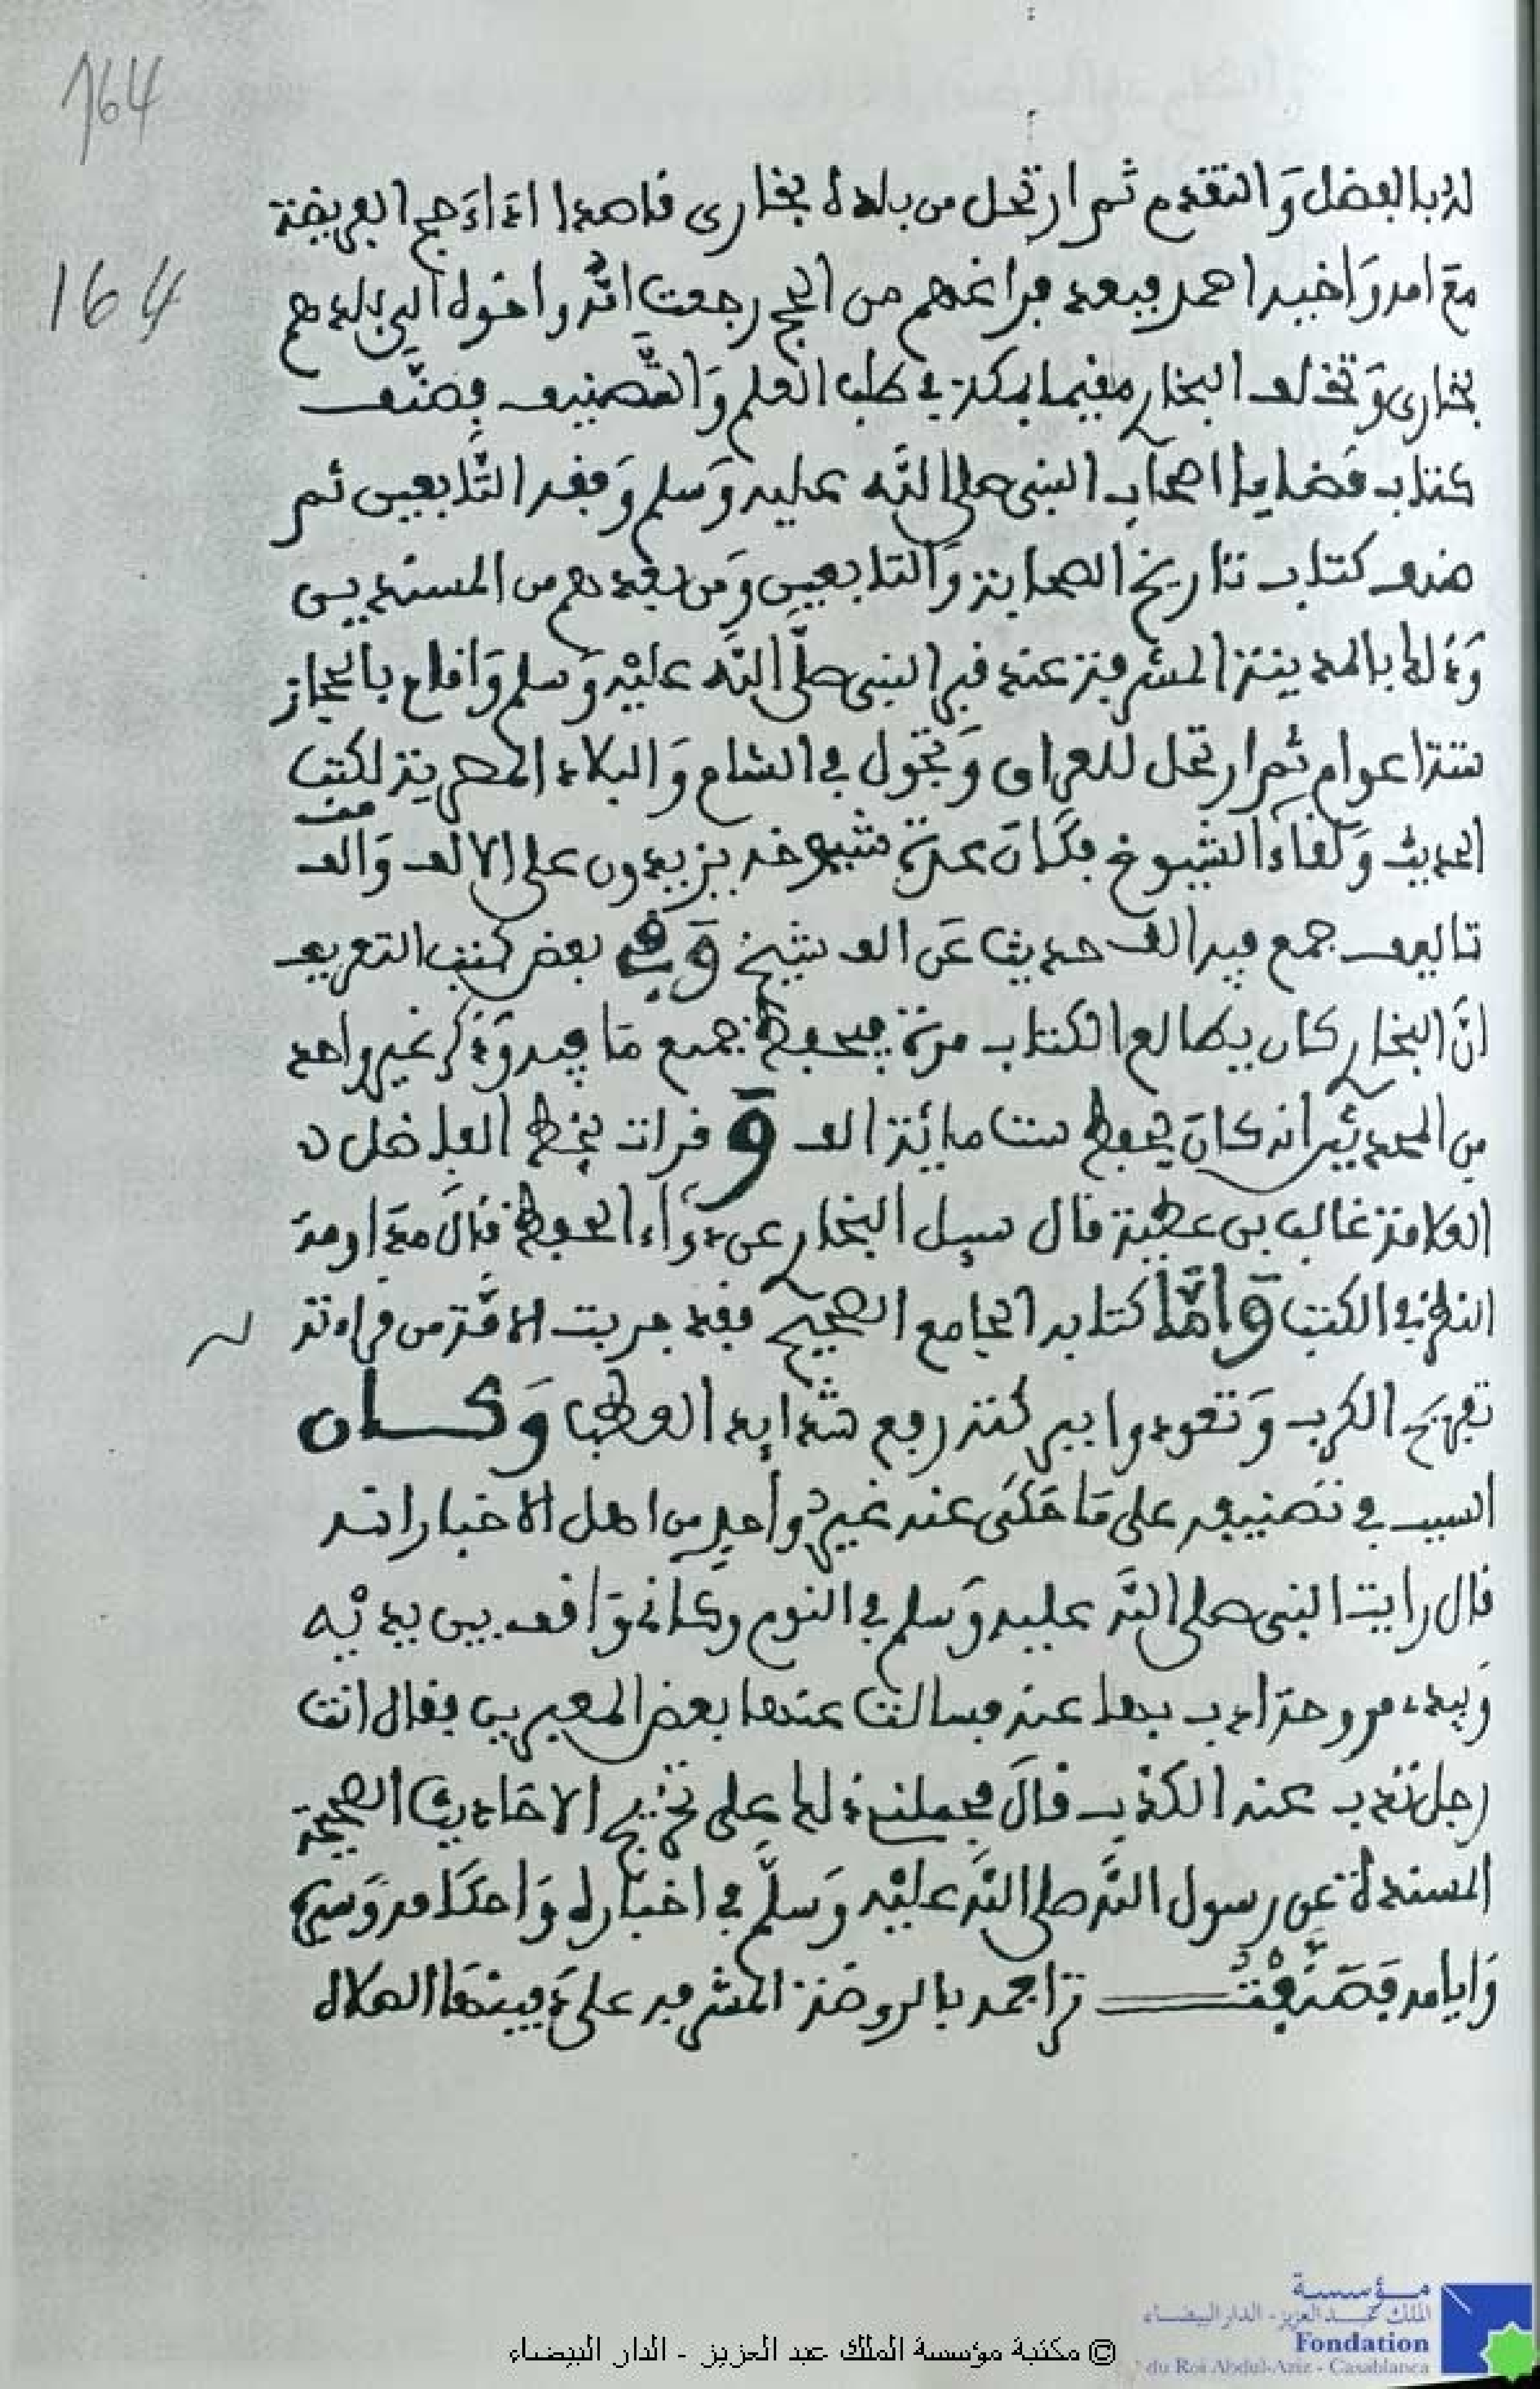 164
164
له بالفضل وَالتقدم ثم ارتحل من بلده بخارى قاصدا اداءَ حج الفريضة
مع امه وَاخيه احمد فبعد فراغهم من الحج رجعت امه واخوه الى بلدهم
بخارى وَتخلف البخارى مقيما بمكة فى طلب العلم وَالتَّصنيف فصنَّف
كتاب قضايا اصحاب النبى صلى اللَّه عليه وَسلم وَفقه التَّابعين ثم
صنف كتاب تاريخ الصحابة وَالتابعين وَمن بعدهم من المسندين
وَذلك بالمدينة المشرفة عند قبر النبى صلَّى اللَّه عليْه وَسلم وَاقام بالحجاز
ستة اعوام ثم ارتحل للعراق وَتجول فى الشام وَالبلاد المصرية لكتب
الحديث وَلقاءَ الشيوخ فكانَ عدة شيوخه يزيدون على الالف وَالف
تاليف جمع فيه الف حديث عَن الف شيخ وَفى بعض كتب التعريف
انَّ البخارى كان يطالع الكتاب مرة فيحفظ جميع مَا فيه وَذكر غير واحد
من المحدثين انه كانَ يحفظ ست مائة الف وَ قرات بخط الفاضل
العلامة غالب بن عطية قال سيل البخارى عن دوَاء الحفظ فقالَ مداومة
النظر فى الكتب وَامَّا كتابه الجامع الصحيح فقد جربت الامَّة من قراءته
تفريجَ الكرب وَتعودوا ببركته رفع شدايد الخطب وَكـــان
السبب فى تصنيفه على مَا حَكَى عنه غير واحد من اهل الاخبار انه
قال رايت النبى صلى اللَّه عليه وَسلم فى النوم وكانى وَاقف بين يديْه
وَبيدى مروحة اذب بها عنه فسالت عنها بعض المعبرين فقال انت
رجل تذب عنه الكذب قالَ فحملنى ذلك على تخريج الاحَاديث الصحيحة
المسندة عن رسول اللَّه صلى اللَّه عليْه وَسلَّم فى اخبَاره وَاحكَامه وَسيره
وَايامه فَصَنَّفْتُ تراجمه بالروضة المشرفه على دفينهَا الصلاة
مؤسسة
الملك عبد العزيز - الدار البيضاء
Fondation
du Roi Abdul-Aziz - Casablanca
© مكتبة مؤسسة الملك عبد العزيز - الدار البيضاء